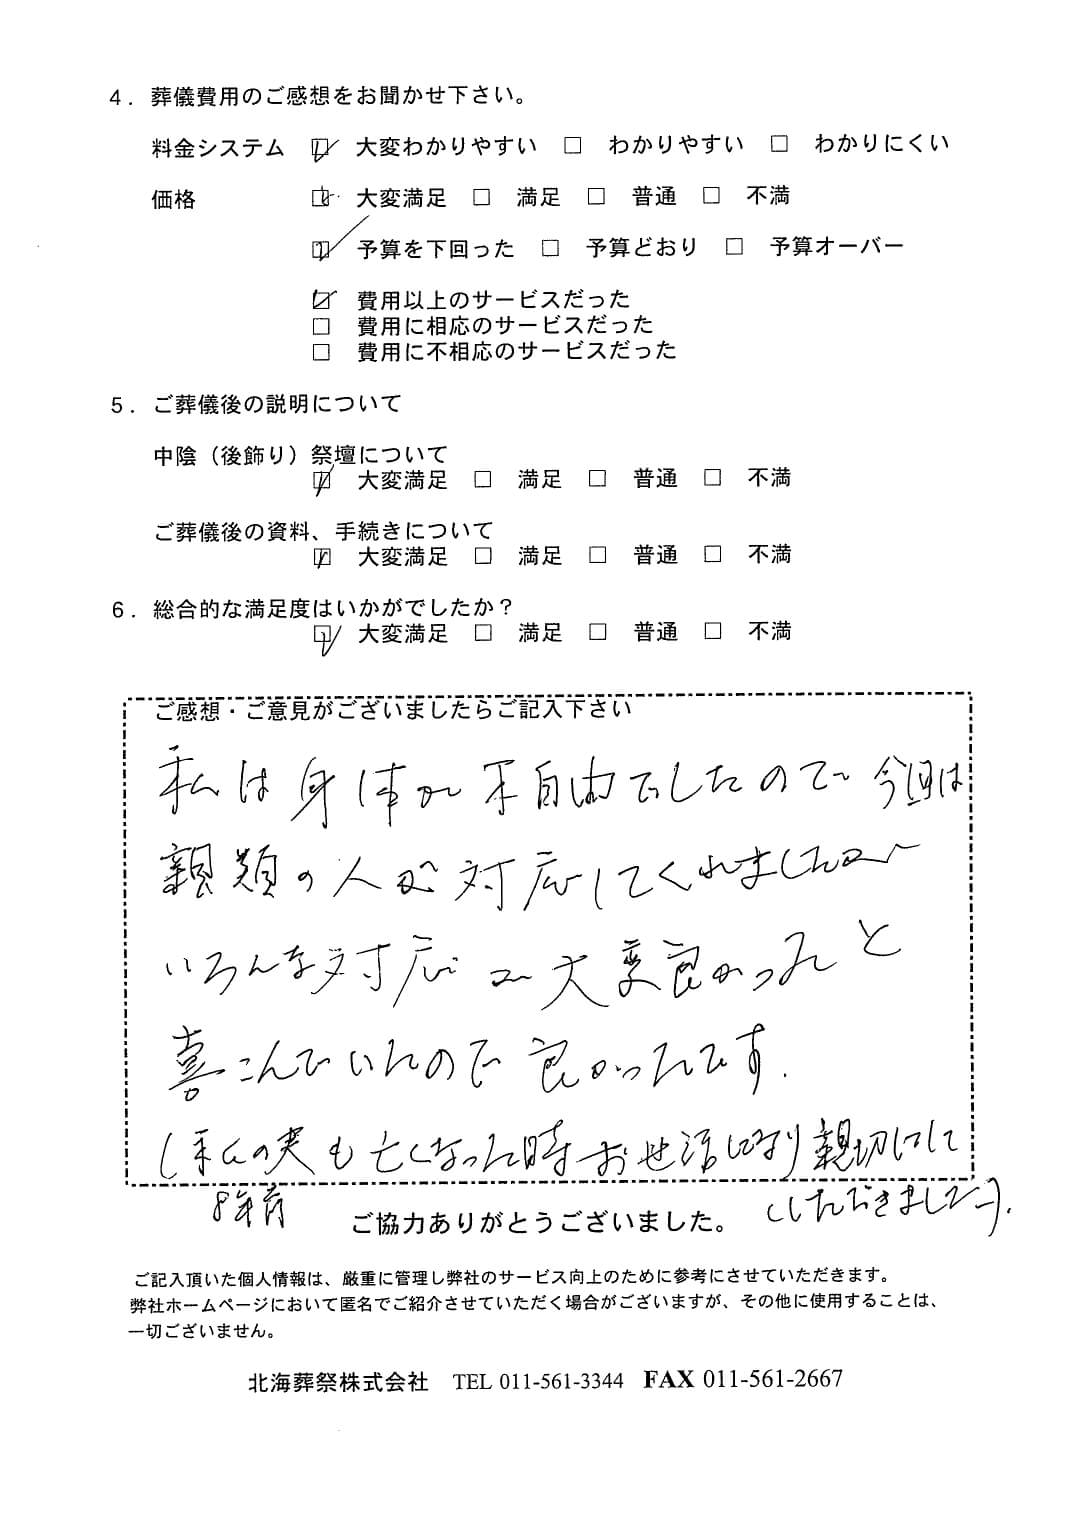 4．葬儀費用のご感想をお聞かせ下さい。
料金システム ☑ 大変わかりやすい □ わかりやすい □ わかりにくい
価格 ☑ 大変満足 □ 満足 □ 普通 □ 不満
☑ 予算を下回った □ 予算どおり □ 予算オーバー
☑ 費用以上のサービスだった
□ 費用に相応のサービスだった
□ 費用に不相応のサービスだった
5．ご葬儀後の説明について
中陰（後飾り）祭壇について
☑ 大変満足 □ 満足 □ 普通 □ 不満
ご葬儀後の資料、手続きについて
☑ 大変満足 □ 満足 □ 普通 □ 不満
6．総合的な満足度はいかがでしたか？
☑ 大変満足 □ 満足 □ 普通 □ 不満
ご感想・ご意見がございましたらご記入下さい
私は身体が不自由でしたので今回は
親類の人が対応してくれましたが
いろんな対応で大変良かったと
喜こんでいたので良かったです.
(私の実も亡くなった時お世話になり親切にして
8年前
いただきました).
ご協力ありがとうございました。
ご記入頂いた個人情報は、厳重に管理し弊社のサービス向上のために参考にさせていただきます。
弊社ホームページにおいて匿名でご紹介させていただく場合がございますが、その他に使用することは、
一切ございません。
北海葬祭株式会社 TEL 011-561-3344 FAX 011-561-2667